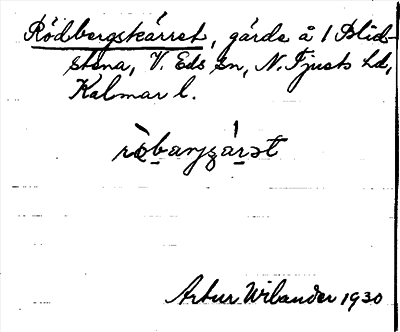 Rödbergskärret, gärde å 1 Blid-
stena, V. Eds sn, N. Tjusts hd,
Kalmar l.
Artur Wilander 1930